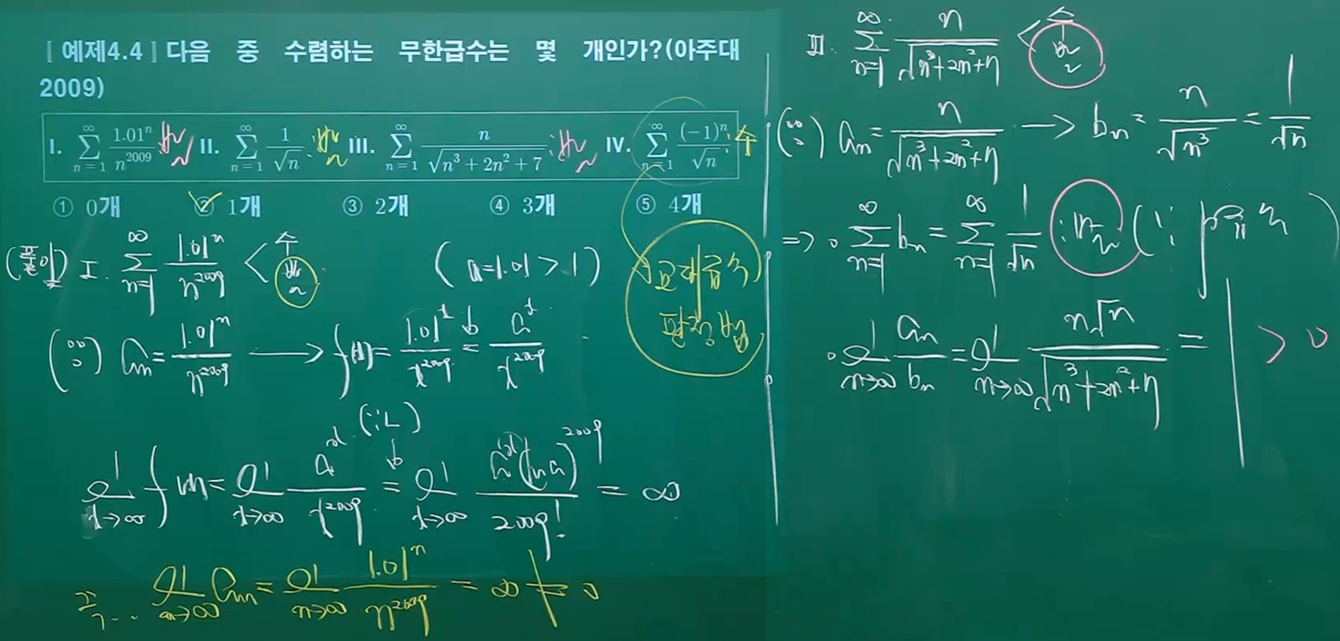 [예제4.4] 다음 중 수렴하는 무한급수는 몇 개인가?(아주대
2009)
I. \sum_{n=1}^{\infty} \frac{1.01^n}{n^{2009}} :발산 II. \sum_{n=1}^{\infty} \frac{1}{\sqrt{n}} :발산 III. \sum_{n=1}^{\infty} \frac{n}{\sqrt{n^3+2n^2+7}} :발산 IV. \sum_{n=1}^{\infty} \frac{(-1)^n}{\sqrt{n}} :수
① 0개 ② 1개 ③ 2개 ④ 3개 ⑤ 4개
(풀이) I. \sum_{n=1}^{\infty} \frac{1.01^n}{n^{2009}} < 수 발산 (a=1.01>1)
교대급수
판정법
(∵) a_n = \frac{1.01^n}{n^{2009}} → f(x) = \frac{1.01^x}{x^{2009}} = \frac{a^x}{x^{2009}}
\lim_{x→∞} f(x) = \lim_{x→∞} \frac{a^x}{x^{2009}} (∵L) = \lim_{x→∞} \frac{a^x(\ln a)^{2009}}{2009!} = ∞
\lim_{n→∞} a_n = \lim_{n→∞} \frac{1.01^n}{n^{2009}} = ∞ ≠ 0
III. \sum_{n=1}^{\infty} \frac{n}{\sqrt{n^3+2n^2+7}} < 수 발산
(∵) a_n = \frac{n}{\sqrt{n^3+2n^2+7}} → b_n = \frac{n}{\sqrt{n^3}} = \frac{1}{\sqrt{n}}
⇒ ∘ \sum_{n=1}^{\infty} b_n = \sum_{n=1}^{\infty} \frac{1}{\sqrt{n}} :발산 (∵
∘ \lim_{n→∞} \frac{a_n}{b_n} = \lim_{n→∞} \frac{n\sqrt{n}}{\sqrt{n^3+2n^2+7}} = 1 > 0